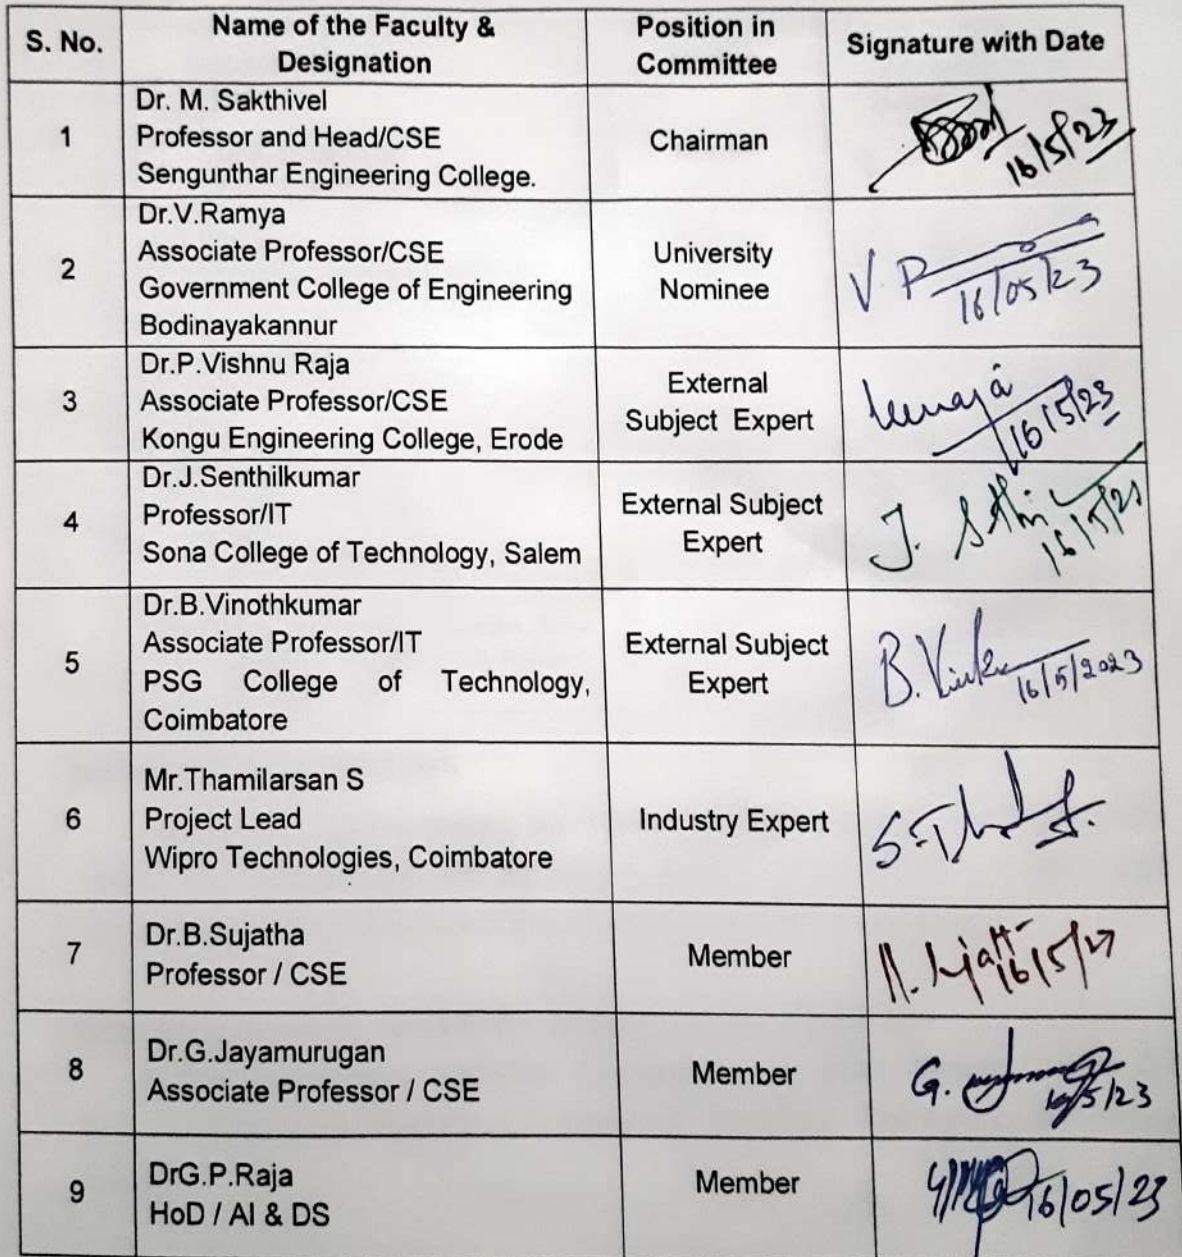 S. No.
Name of the Faculty &
Designation
Position in
Committee
Signature with Date
1
Dr. M. Sakthivel
Professor and Head/CSE
Sengunthar Engineering College.
Chairman
16/5/23
2
Dr.V.Ramya
Associate Professor/CSE
Government College of Engineering
Bodinayakannur
University
Nominee
V. R
16/05/23
3
Dr.P.Vishnu Raja
Associate Professor/CSE
Kongu Engineering College, Erode
External
Subject Expert
16/5/23
4
Dr.J.Senthilkumar
Professor/IT
Sona College of Technology, Salem
External Subject
Expert
J.
5
Dr.B.Vinothkumar
Associate Professor/IT
PSG College of Technology,
Coimbatore
External Subject
Expert
B.
16/5/2023
6
Mr.Thamilarsan S
Project Lead
Wipro Technologies, Coimbatore
Industry Expert
7
Dr.B.Sujatha
Professor / CSE
Member
8
Dr.G.Jayamurugan
Associate Professor / CSE
Member
G.
16/5/23
9
DrG.P.Raja
HoD / AI & DS
Member
16/05/23